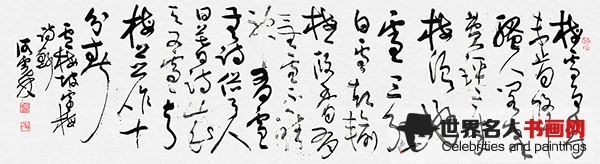 梅雪争
春未肯降
骚人阁笔
费评章
梅须逊
雪三分
白雪却输
梅一段香有
梅无雪不精
神有雪
无诗俗了人
日暮诗成
天又雪与
梅并作十
分春
卢梅坡雪梅
诗
世界名人书画网
Celebrities and paintings